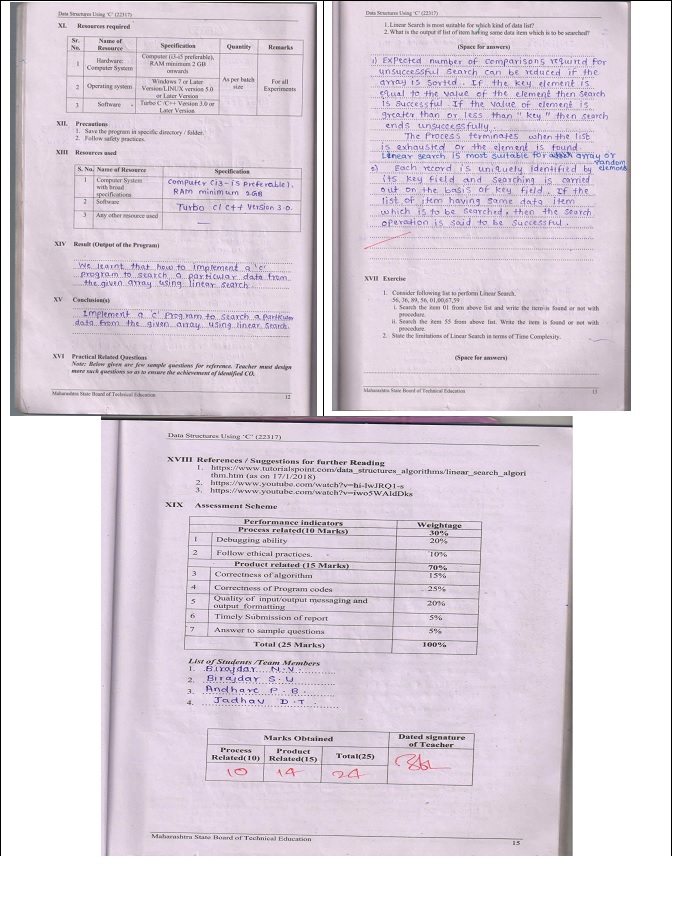 Data Structures Using 'C' (22317)
XI. Resources required
Sr. No. Name of Resource Specification Quantity Remarks
1 Hardware: Computer System Computer (i3-i5 preferable), RAM minimum 2 GB onwards As per batch size For all Experiments
2 Operating system Windows 7 or Later Version/LINUX version 5.0 or Later Version
3 Software Turbo C /C++ Version 3.0 or Later Version
XII. Precautions
1. Save the program in specific directory / folder.
2. Follow safety practices.
XIII Resources used
S. No. Name of Resource Specification
1 Computer System with broad specifications Computer (i3-i5 Preferable). RAM minimum 2GB
2 Software Turbo C/C++ Version 3.0.
3 Any other resource used —
XIV Result (Output of the Program)
We learnt that how to implement a 'c'
program to search a particular data from
the given array using linear search.
XV Conclusion(s)
Implement a 'c' Program to search a particular
data from the given array using linear search.
XVI Practical Related Questions
Note: Below given are few sample questions for reference. Teacher must design
more such questions so as to ensure the achievement of identified CO.
Maharashtra State Board of Technical Education 12
Data Structures Using 'C' (22317)
1. Linear Search is most suitable for which kind of data list?
2. What is the output if list of item having same data item which is to be searched?
(Space for answers)
1) Expected number of comparisons required for
unsuccessful search can be reduced if the
array is sorted. If the key element is
equal to the value of the element then search
is successful. If the value of element is
greater than or less than "key" then search
ends unsuccessfully.
The Process terminates when the list
is exhausted or the element is found.
Linear search is most suitable for array or random element
2) Each record is uniquely identified by
its key field and searching is carried
out on the basis of key field. If the
list of item having same data item
which is to be searched, then the search
operation is said to be successful.
XVII Exercise
1. Consider following list to perform Linear Search.
56, 36, 89, 56, 01,00,67,59
i. Search the item 01 from above list and write the item is found or not with
procedure.
ii. Search the item 55 from above list. Write the item is found or not with
procedure.
2. State the limitations of Linear Search in terms of Time Complexity.
(Space for answers)
Maharashtra State Board of Technical Education 13
Data Structures Using 'C' (22317)
XVIII References / Suggestions for further Reading
1. https://www.tutorialspoint.com/data_structures_algorithms/linear_search_algori
thm.htm (as on 17/1/2018)
2. https://www.youtube.com/watch?v=hi-IwJRQ1-s
3. https://www.youtube.com/watch?v=iwo5WAldDks
XIX Assessment Scheme
Performance indicators Weightage
Process related(10 Marks) 30%
1 Debugging ability 20%
2 Follow ethical practices. 10%
Product related (15 Marks) 70%
3 Correctness of algorithm 15%
4 Correctness of Program codes 25%
5 Quality of input/output messaging and output formatting 20%
6 Timely Submission of report 5%
7 Answer to sample questions 5%
Total (25 Marks) 100%
List of Students /Team Members
1. Birajdar N.V.
2. Birajdar S.U
3. Andhare P.B
4. Jadhav D.T.
Marks Obtained Dated signature of Teacher
Process Related(10) Product Related(15) Total(25)
10 14 24
Maharashtra State Board of Technical Education 15